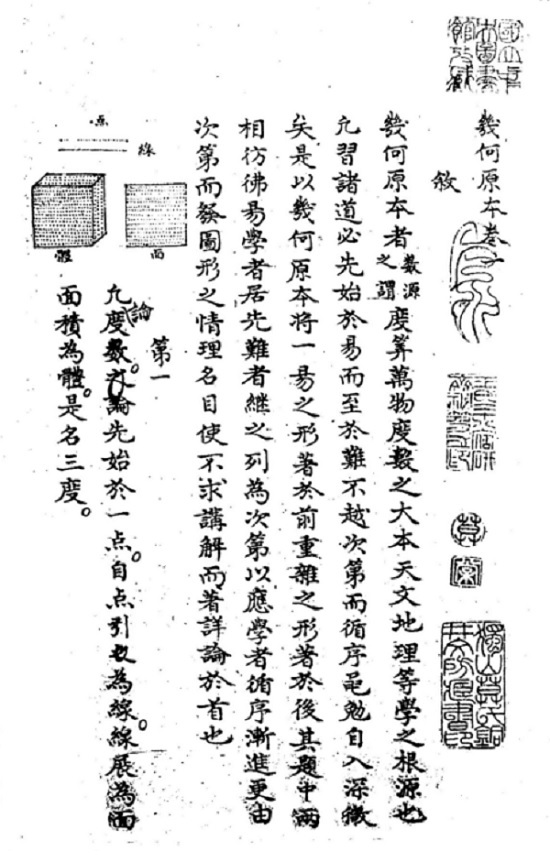 幾何原本卷一
敘
幾何原本者數源之謂度算萬物度數之大本天文地理等學之根源也
凡習諸道必先始於易而至於難不越次第而循序黽勉自入深微
矣是以幾何原本將一易之形著於前重雜之形著於後其題中兩
相彷彿易學者居先難者繼之列為次第以應學者循序漸進更由
次第而發圖形之情理名目使不求講解而著詳論於首也
点
線
面
體
論
第一
凡度數之論先始於一点。自点引為線。線展為面
面積為體。是名三度。
國立中
央圖書
館收藏
莫
棠
獨山莫氏銅
井文房藏書印